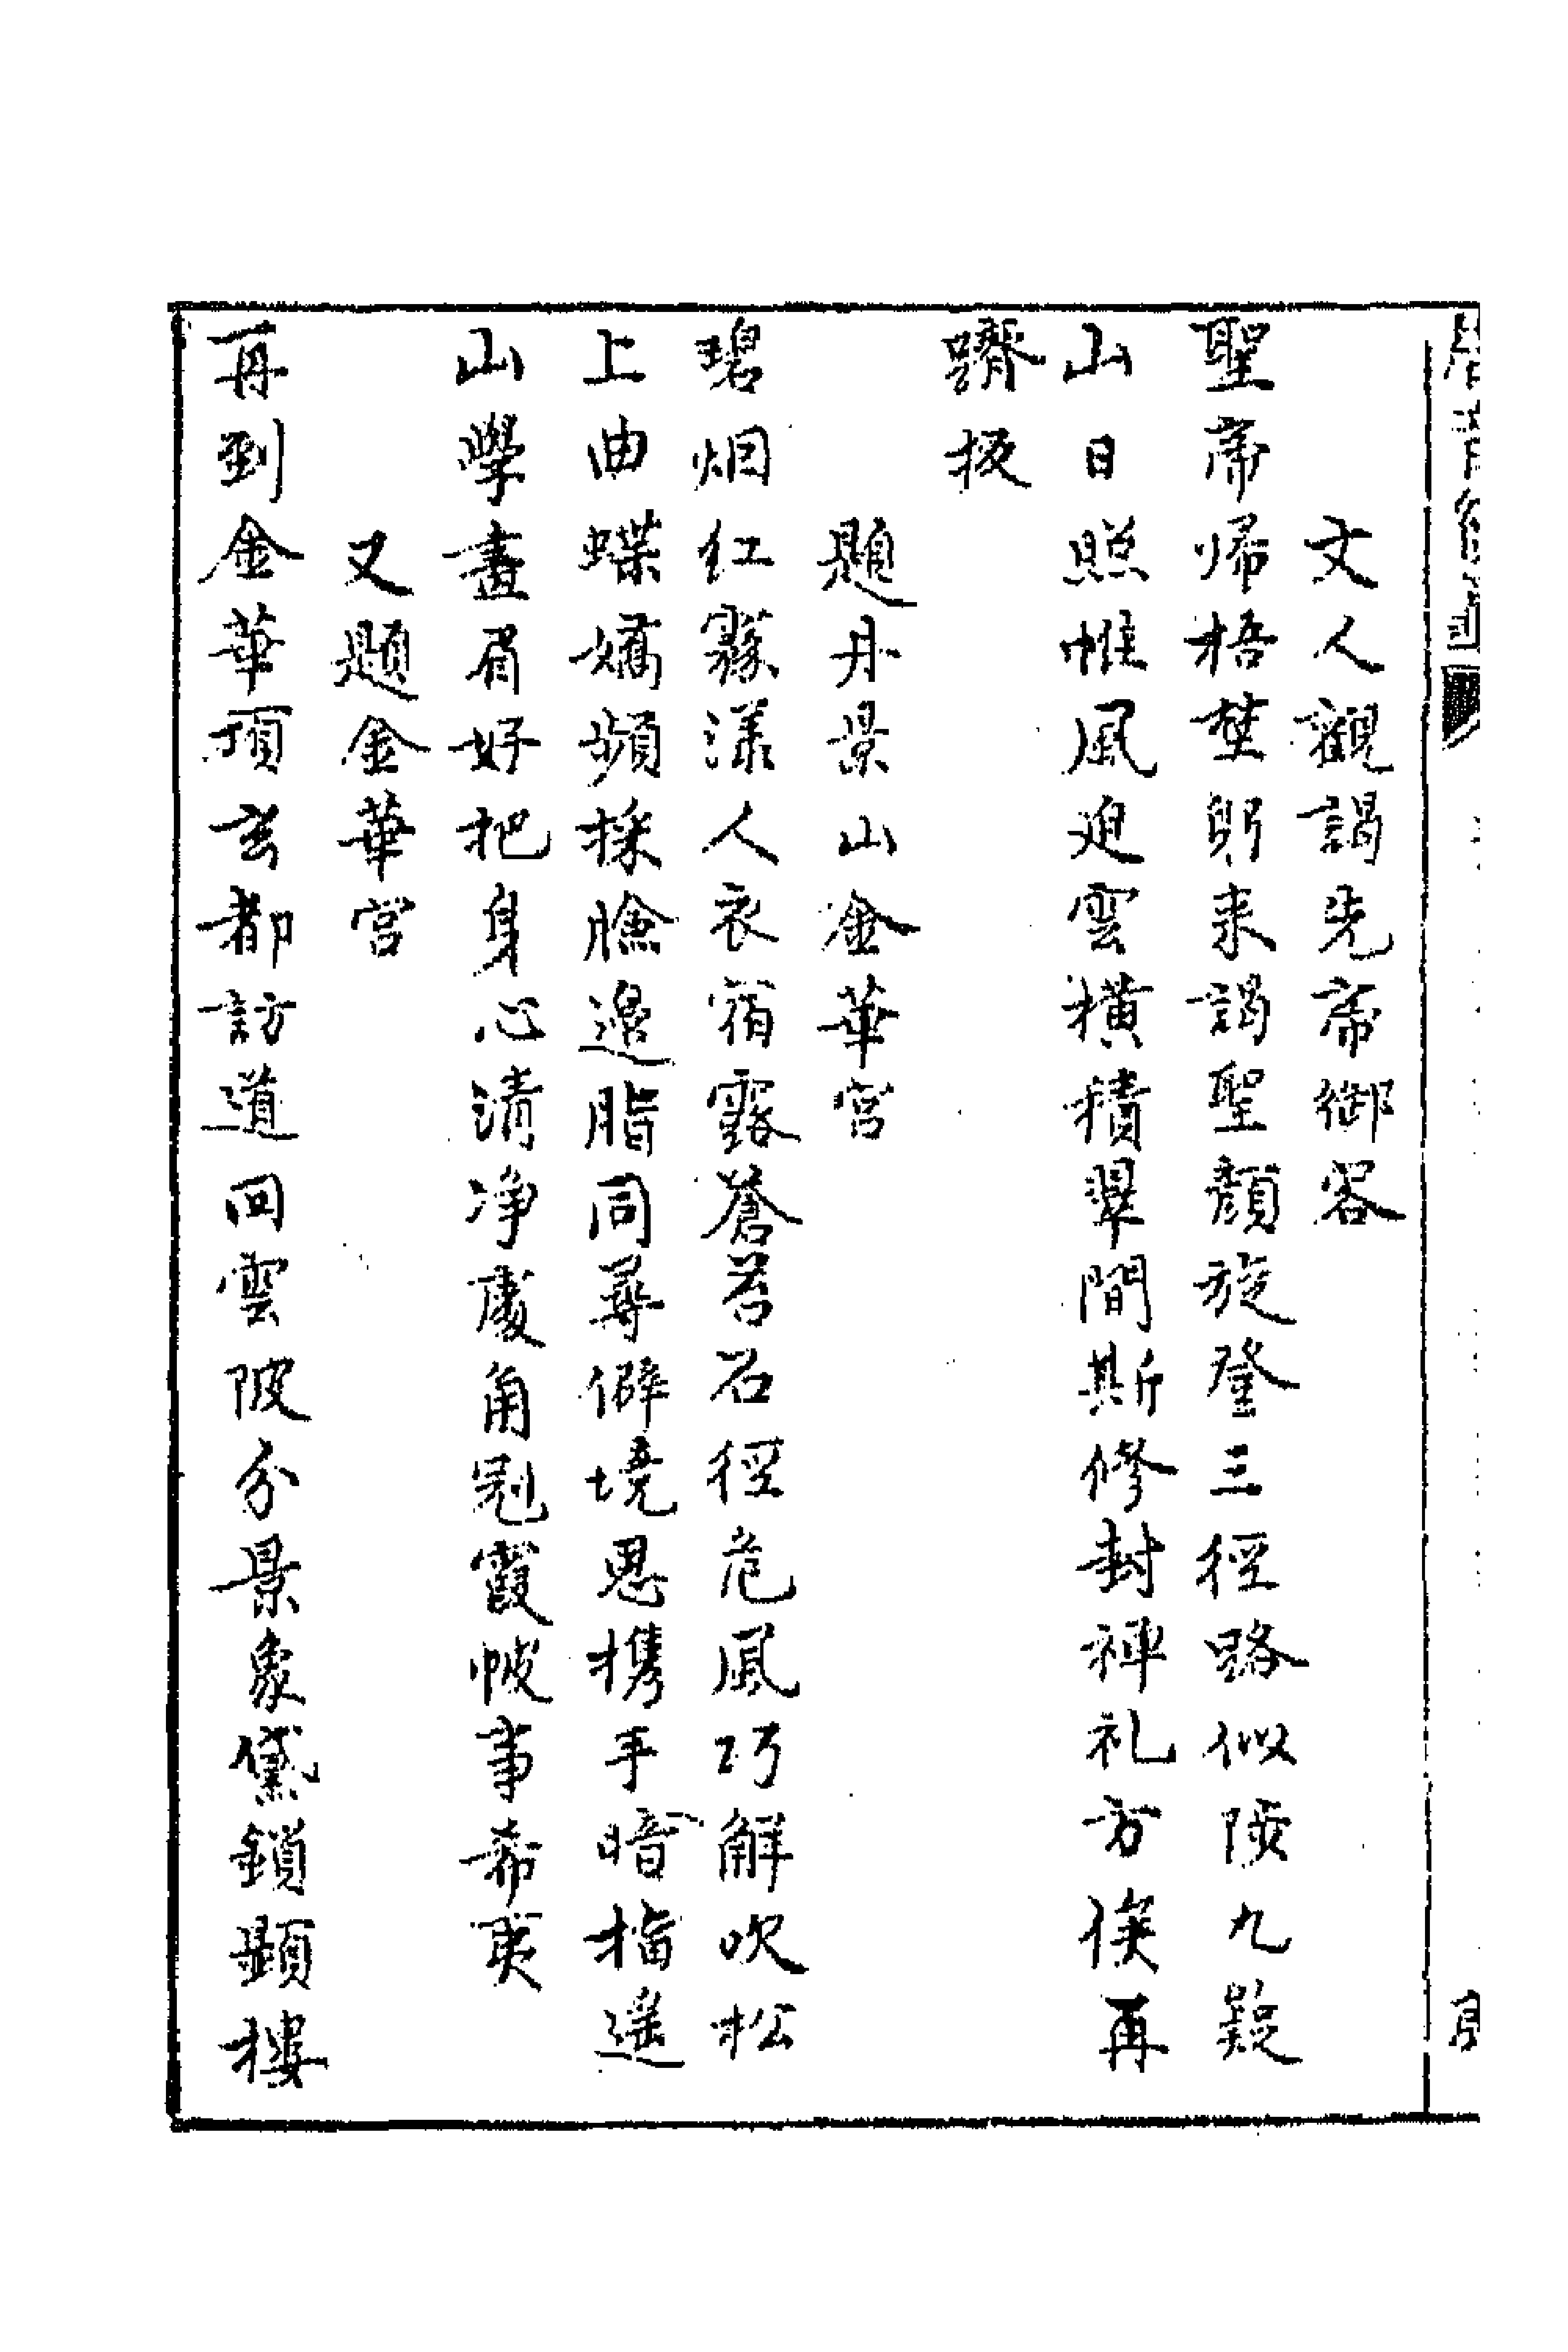 文人觀謁先帝御容
聖帝歸梧埜躬來謁聖顏旋登三徑路似陟九疑
山日照帷風廹雲橫積翠間斯修封禪礼方俟再
躋扳
題丹景山金華宮
碧烟紅霧漾人衣宿露蒼苔石徑危風巧解吹松
上曲蝶嬌頻採臉邉脂同尋僻境思携手暗指遥
山學畫眉好把身心清净處角冠霞帔事希夷
又題金華宮
再到金華頂玄都訪道回雲陂分景象黛鎖顯樓